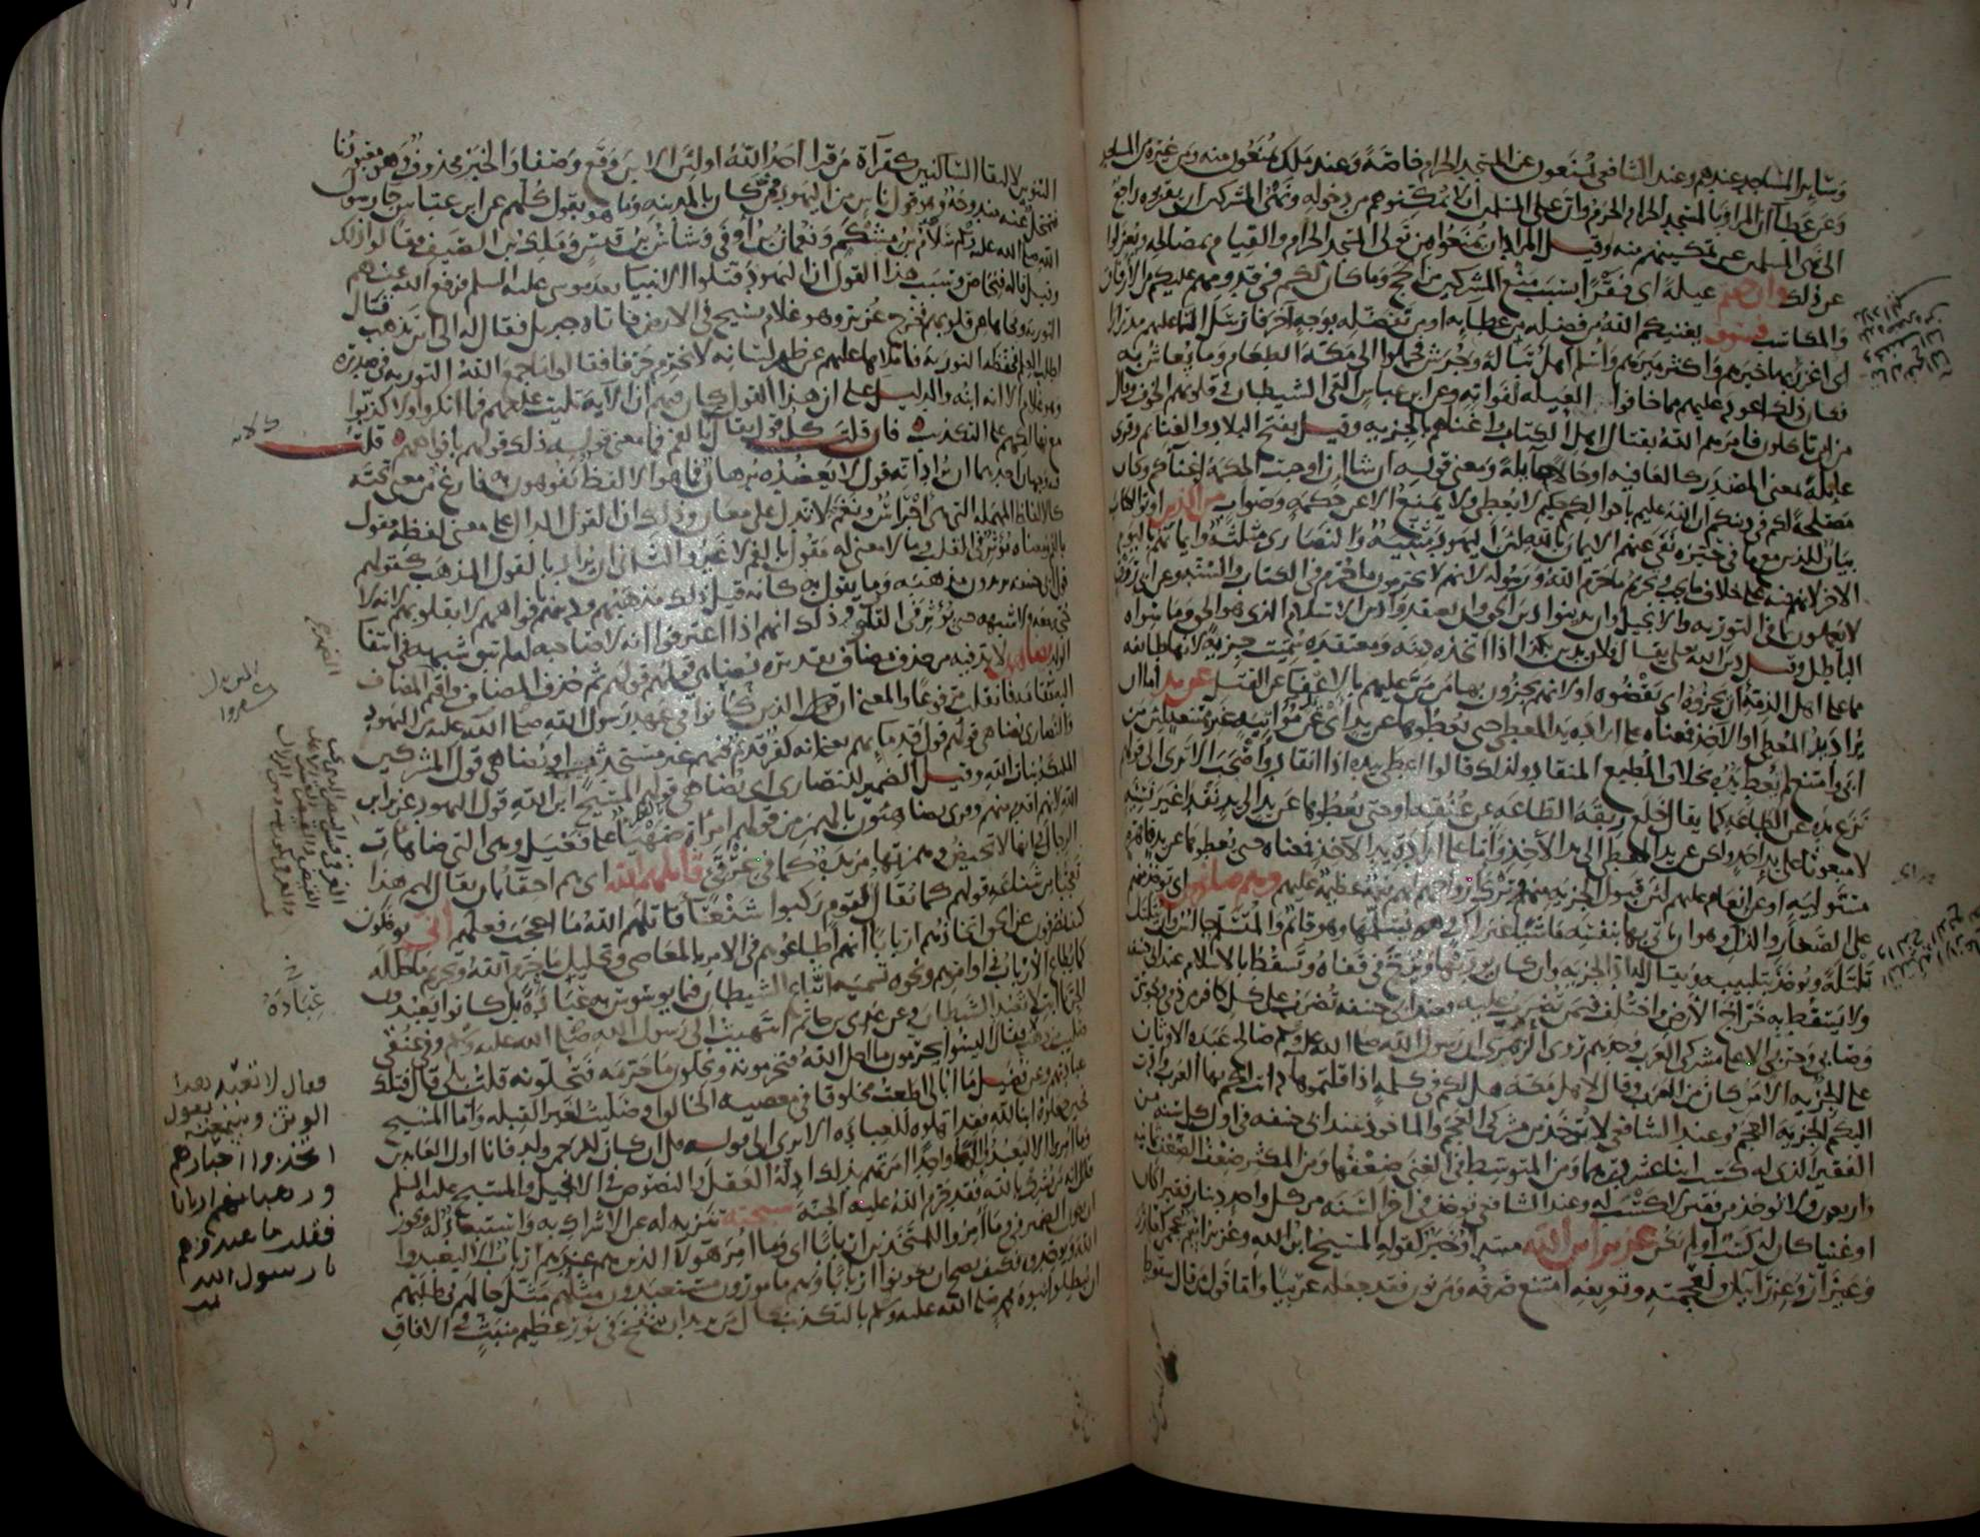 وسائر المساجد عندهم وعند الشافعي يمنعون عن المسجد الحرام خاصة وعند ملك يمنعون منه ومن غيره من المساجد
وعن عطا أن المراد بالمسجد الحرام الحرم وأن على المسلمين أن لا يمكنوهم من دخوله ونهي المشركين أن يقربوه راجع
الى نهي المسلمين عن تمكينهم منه وقيل المراد أن يمنعوا من تولي المسجد الحرام والقيام بمصالحه ويعزلوا
عن ذلك وان خفتم عيلة اي فقرا بسبب منع المشركين من الحج وما كان لكم في قدومهم عليكم من الأرفاق
والمكاسب فسوف يغنيكم الله من فضله من عطايه او من تفضله بوجه آخر فأرسل السما عليهم مدرارا
اي اغزر بها خيرهم واكثر ميرهم واسلم اهل تبالة وجرش فحملوا الى مكة الطعام وما يعاش به
فكان ذلك اعود عليهم مما خافوا العيلة لفواته وعن ابن عباس القى الشيطان في قلوبهم الخوف وقال
من اين تاكلون فامرهم الله بقتال اهل الكتاب واغناهم بالجزيه وقيل بفتح البلاد والغنائم وقرى
عايلة بمعنى المصدر كالعافيه او حالا عايلة ومعنى قوله ان شا ان اوجبت الحكمة اغناكم وكان
مصلحة لكم في دينكم ان الله عليم باحوالكم حكيم لا يعطي ولا يمنع الا عن حكمة وصواب من الذين اوتوا الكتاب
بيان للذين مع ما في حيزه نفى عنهم الايمان بالله لأن اليهود مثنية والنصارى مثلثة وايمانهم باليوم
الاخر لأنهم فيه على خلاف ما يجب وتحريم ما حرم الله ورسوله لانهم لا يحرمون ما حرم في الكتاب والسنة وعن ابي روق
لا يعملون بما في التوريه والانجيل وان يدينوا دين الحق وان يعتقدوا دين الاسلام الذي هو الحق وما سواه
الباطل وقيل دين الله يقال فلان يدين بكذا اذا اتخذه دينه ومعتقده سميت جزية لانها طائفه
مما على اهل الذمة أن يجزوه اي يقضوه او لانهم يجزون بها من من عليهم بالاعفا عن القتل عن يد اما ان
يراد يد المعطي او الآخذ فمعناه على ارادة يد المعطي حتى يعطوها عن يد أي عن يد مواتيه غير ممتنعة لأن من
ابى وامتنع لم يعط يده بخلاف المطيع المنقاد ولذلك قالوا اعطى بيده اذا انقاد واصحب الا ترى الى قولهم
نزع يده عن الطاعة كما يقال خلع ربقة الطاعة عن عنقه او حتى يعطوها عن يد الى يد نقدا غير نسية
لا مبعوثا على يد احد ولكن عن يد المعطي الى يد الآخذ واما على ارادة يد الآخذ فمعناه حتى يعطوها عن يد قاهرة
مستولية او عن انعام عليهم لأن قبول الجزيه منهم وترك ارواحهم لهم نعمة عظيمة عليهم وهم صاغرون اي توخذ منهم
على الصغار والذل وهو ان ياتي بها بنفسه ماشيا غير راكب ويسلمها وهو قائم والمتسلم جالس وان يتلتل
تلتلة ويوخذ بتلبيبه ويقال له اد الجزيه وان كان يوديها ويزخ في قفاه وتسقط بالاسلام عند ابي حنيفة
ولا يسقط به خراج الأرض واختلف فيمن تضرب عليه فعند ابي حنيفه تضرب على كل كافر من ذمي ومجوسي
وصابي وحربي الا على مشركي العرب وحدهم روى الزهري ان رسول الله صلى الله عليه وسلم صالح عبدة الأوثان
على الجزيه الا من كان من العرب وقال لاهل مكة هل لكم في كلمة اذا قلتموها دانت لكم بها العرب وأدت
اليكم الجزية العجم وعند الشافعي لا توخذ من مشركي العجم والماخوذ عند ابي حنيفه في اول كل سنه من
الفقير الذي له كسب اثنا عشر درهما ومن المتوسط في الغنى ضعفها ومن المكثر ضعف الضعف ثمانيه
واربعون ولا توخذ من فقير لا كسب له وعند الشافعي توخذ في اخر السنه من كل واحد دينار فقيرا كان
او غنيا كان له كسب أو لم يكن عزير ابن الله مبتدأ وخبر كقوله المسيح ابن الله وعزير اسم اعجمي كعازر
وعيزار وعزرائيل ولعجمته وتعريفه امتنع صرفه ومن نون فقد جعله عربيا واما قول من قال سقوط
التنوين لالتقا الساكنين كقراة من قرا احد الله اولأن الابن وقع وصفا والخبر محذوف وهو معبودنا
فتمحل عنه مندوحة وهو قول ناس من اليهود ممن كان بالمدينه وما هو بقول كلهم عن ابن عباس جا رسول
الله صلى الله عليه وسلم سلام بن مشكم ونعمان بن أوفى وشاس بن قيس ومالك بن الصيف فقالوا ذلك
وقيل قاله فنحاص وسبب هذا القول ان اليهود قتلوا الانبيا بعد موسى عليه السلم فرفع الله عنهم
التوريه ومحاها من قلوبهم فخرج عزير وهو غلام يسيح في الارض فاتاه جبريل فقال له الى اين تذهب قال
اطلب العلم فحفظه التورية فاملاها عليهم عن ظهر لسانه لا يخرم حرفا فقالوا ما جمع الله التوريه في صدره
وهو غلام الا انه ابنه والدليل على ان هذا القول كان فيهم أن الآية تليت عليهم فما انكروا ولا كذبوا
مع تهالكهم على التكذيب فان قلت كل قول يقال بالفم فما معنى قوله ذلك قولهم بافواههم قلت
فيه وجهان احدهما ان يراد انه قول لا يعضده برهان فما هو الا لفظ يفوهون به فارغ من معنى تحته
كالالفاظ المهمله التي هي اجراس ونغم لا تدل على معان وذلك ان القول الدال على معنى لفظه مقول
بالفم ومعناه مؤثر في القلب وما لا معنى له مقول بالفم لا غير والثاني ان يراد بالقول المذهب كقولهم
قول ابي حنيفه يريدون مذهبه وما يقول به كانه قيل ذلك مذهبهم ودينهم بافواههم لا بقلوبهم لانه لا
حجة معه ولا شبهه حتى يؤثر في القلوب وذلك انهم اذا اعترفوا انه لا صاحبه له لم تبق شبهه في انتفا
الولد يضاهون لا بد فيه من حذف مضاف تقديره يضاهي قولهم قولهم ثم حذف المضاف واقيم المضاف
اليه مقامه فانقلب مرفوعا والمعنى ان الذين كانوا في عهد رسول الله صلى الله عليه من اليهود
والنصارى يضاهي قولهم قول قدمايهم يعني انه كفر قديم فيهم غير مستحدث او يضاهي قول المشركين
الملائكة بنات الله وقيل الضمير للنصارى اي يضاهي قولهم المسيح ابن الله قول اليهود عزير ابن
الله لانهم اقدم منهم وقرى يضاهئون بالهمز من قولهم امراة ضهيا على فعيل وهي التي ضاهات
الرجال في انها لا تحيض وهمزتها مزيدة كما في غرقئ قاتلهم الله اي هم احقا بان يقال لهم هذا
تعجبا من شناعة قولهم كما يقال لقوم ركبوا شنعا قاتلهم الله ما اعجب فعلهم أنى يوفكون
كيف يصرفون عن الحق اتخاذهم اربابا انهم اطاعوهم في الامر بالمعاصي وتحليل ما حرم الله وتحريم ما حلله
كما يطاع الأرباب في اوامرهم ونحوه تسميه اتباع الشيطان فيما يوسوس به عبادة بل كانوا يعبدون
الجن يا ابت لا تعبد الشيطان وعن عدي بن حاتم انتهيت الى رسول الله صلى الله عليه وسلم وفي عنقي
صليب من ذهب فقال اليسوا يحرمون ما احل الله فتحرمونه ويحلون ما حرمه فتحلونه قلت بلى قال فتلك
عبادتهم وعن فضيل ما ابالي اطعت مخلوقا في معصية الخالق او صليت لغير القبله واما المسيح
فحين جعلوه ابنا لله فقد اهلوه للعبادة الا ترى الى قوله قل ان كان للرحمن ولد فانا اول العابدين
وما امروا الا ليعبدوا الها واحدا امرتهم بذلك ادلة العقل والنصوص في الانجيل والمسيح عليه السلم
انه من يشرك بالله فقد حرم الله عليه الجنة سبحنه تنزيه له عن الاشراك به واستبعاد له ويجوز
ان يكون الضمير في وما أمروا للمتخذين اربابا اى وما امر هولا الذين هم عندهم ارباب الا ليعبدوا
الله ويوحدوه فكيف يصح ان يكونوا اربابا وهم مامورون مستعبدون مثلهم مثل حالهم في طلبهم
ان يبطلوا نبوة محمد صلى الله عليه وسلم بالتكذيب بحال من يريد ان ينفخ في نور عظيم منبث في الافاق
في
عبادة
فقال لا تعبد هذا
الوثن وسمعته يقول
اتخذوا احبارهم
ورهبانهم اربابا
فقلت ما عبدوهم
يا رسول الله